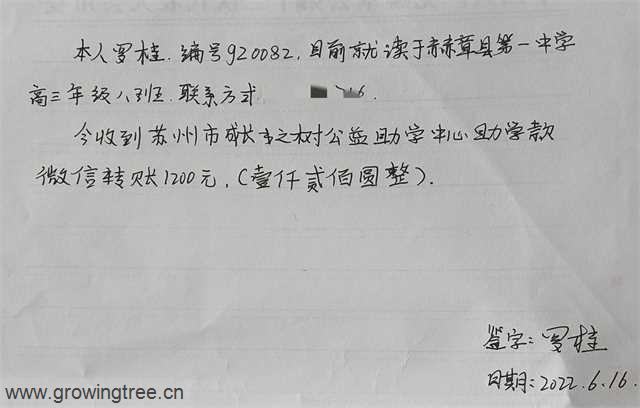 本人罗桂.编号920082,目前就读于赫章县第一中学
高三年级八班.联系方式 16.
今收到苏州市成长之树公益助学中心助学款
微信转账1200元,(壹仟贰佰圆整).
签字:罗桂
日期:2022.6.16.
www.growingtree.cn